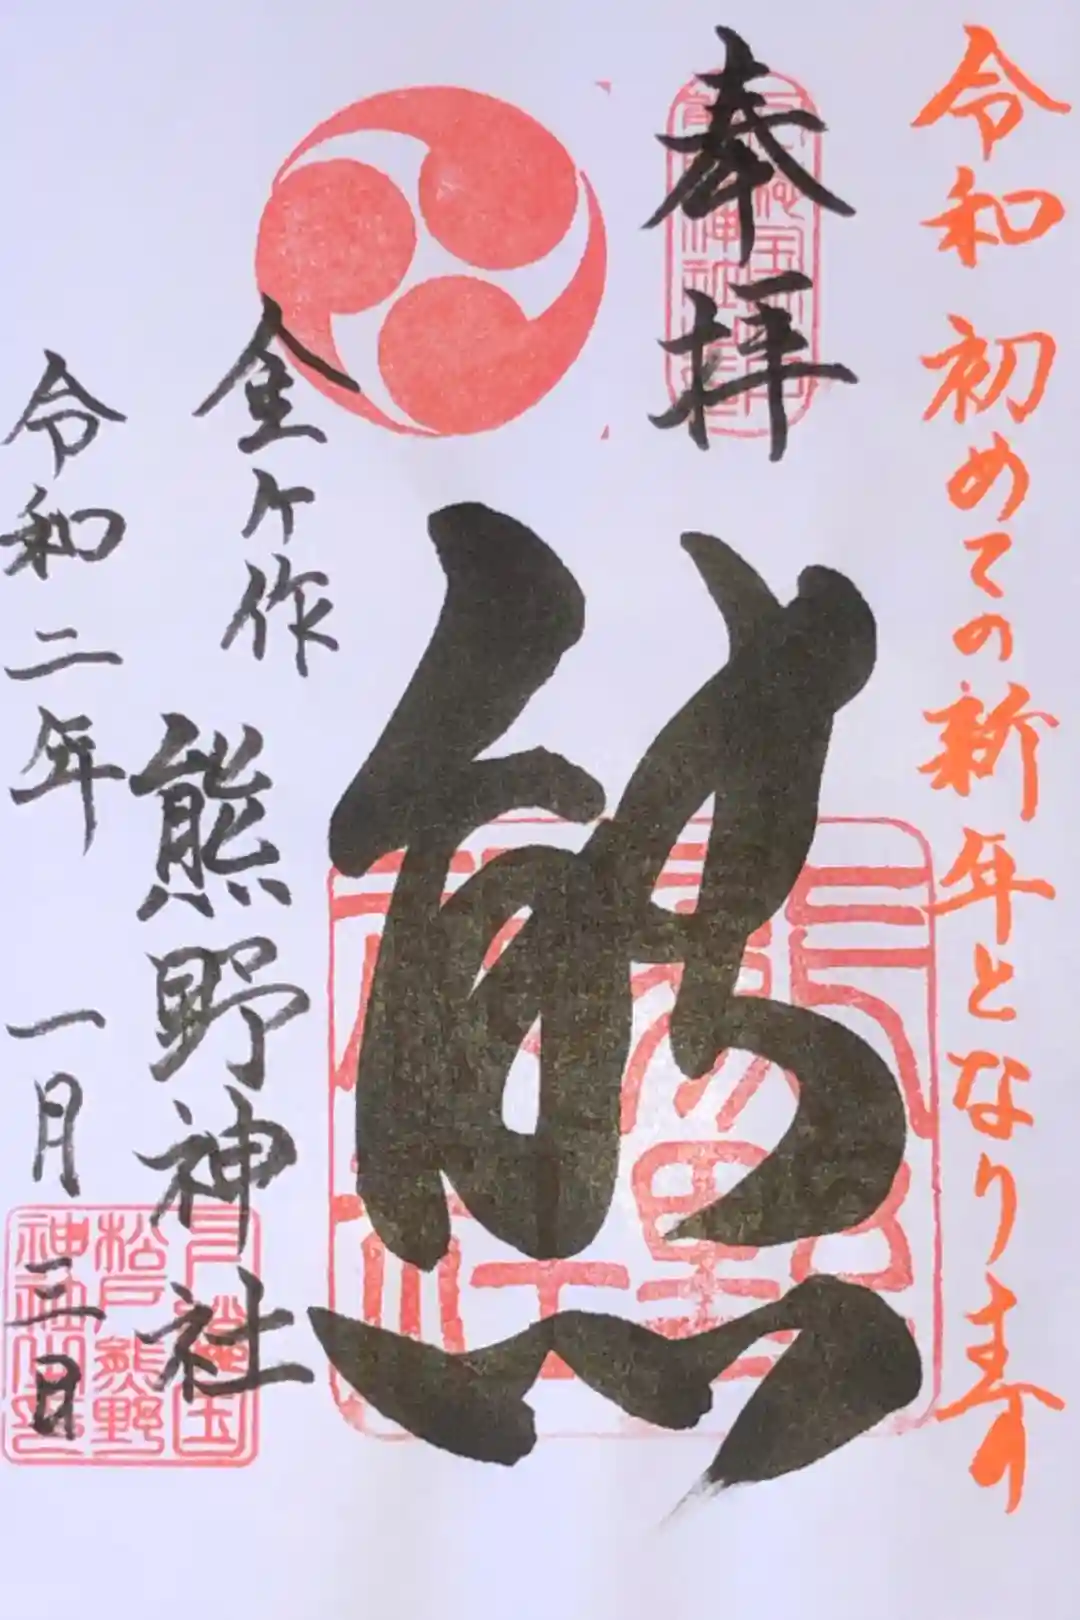 令和 初めての新年となり寿
奉拝
熊
金ケ作
熊野神社
令和二年 一月 三日